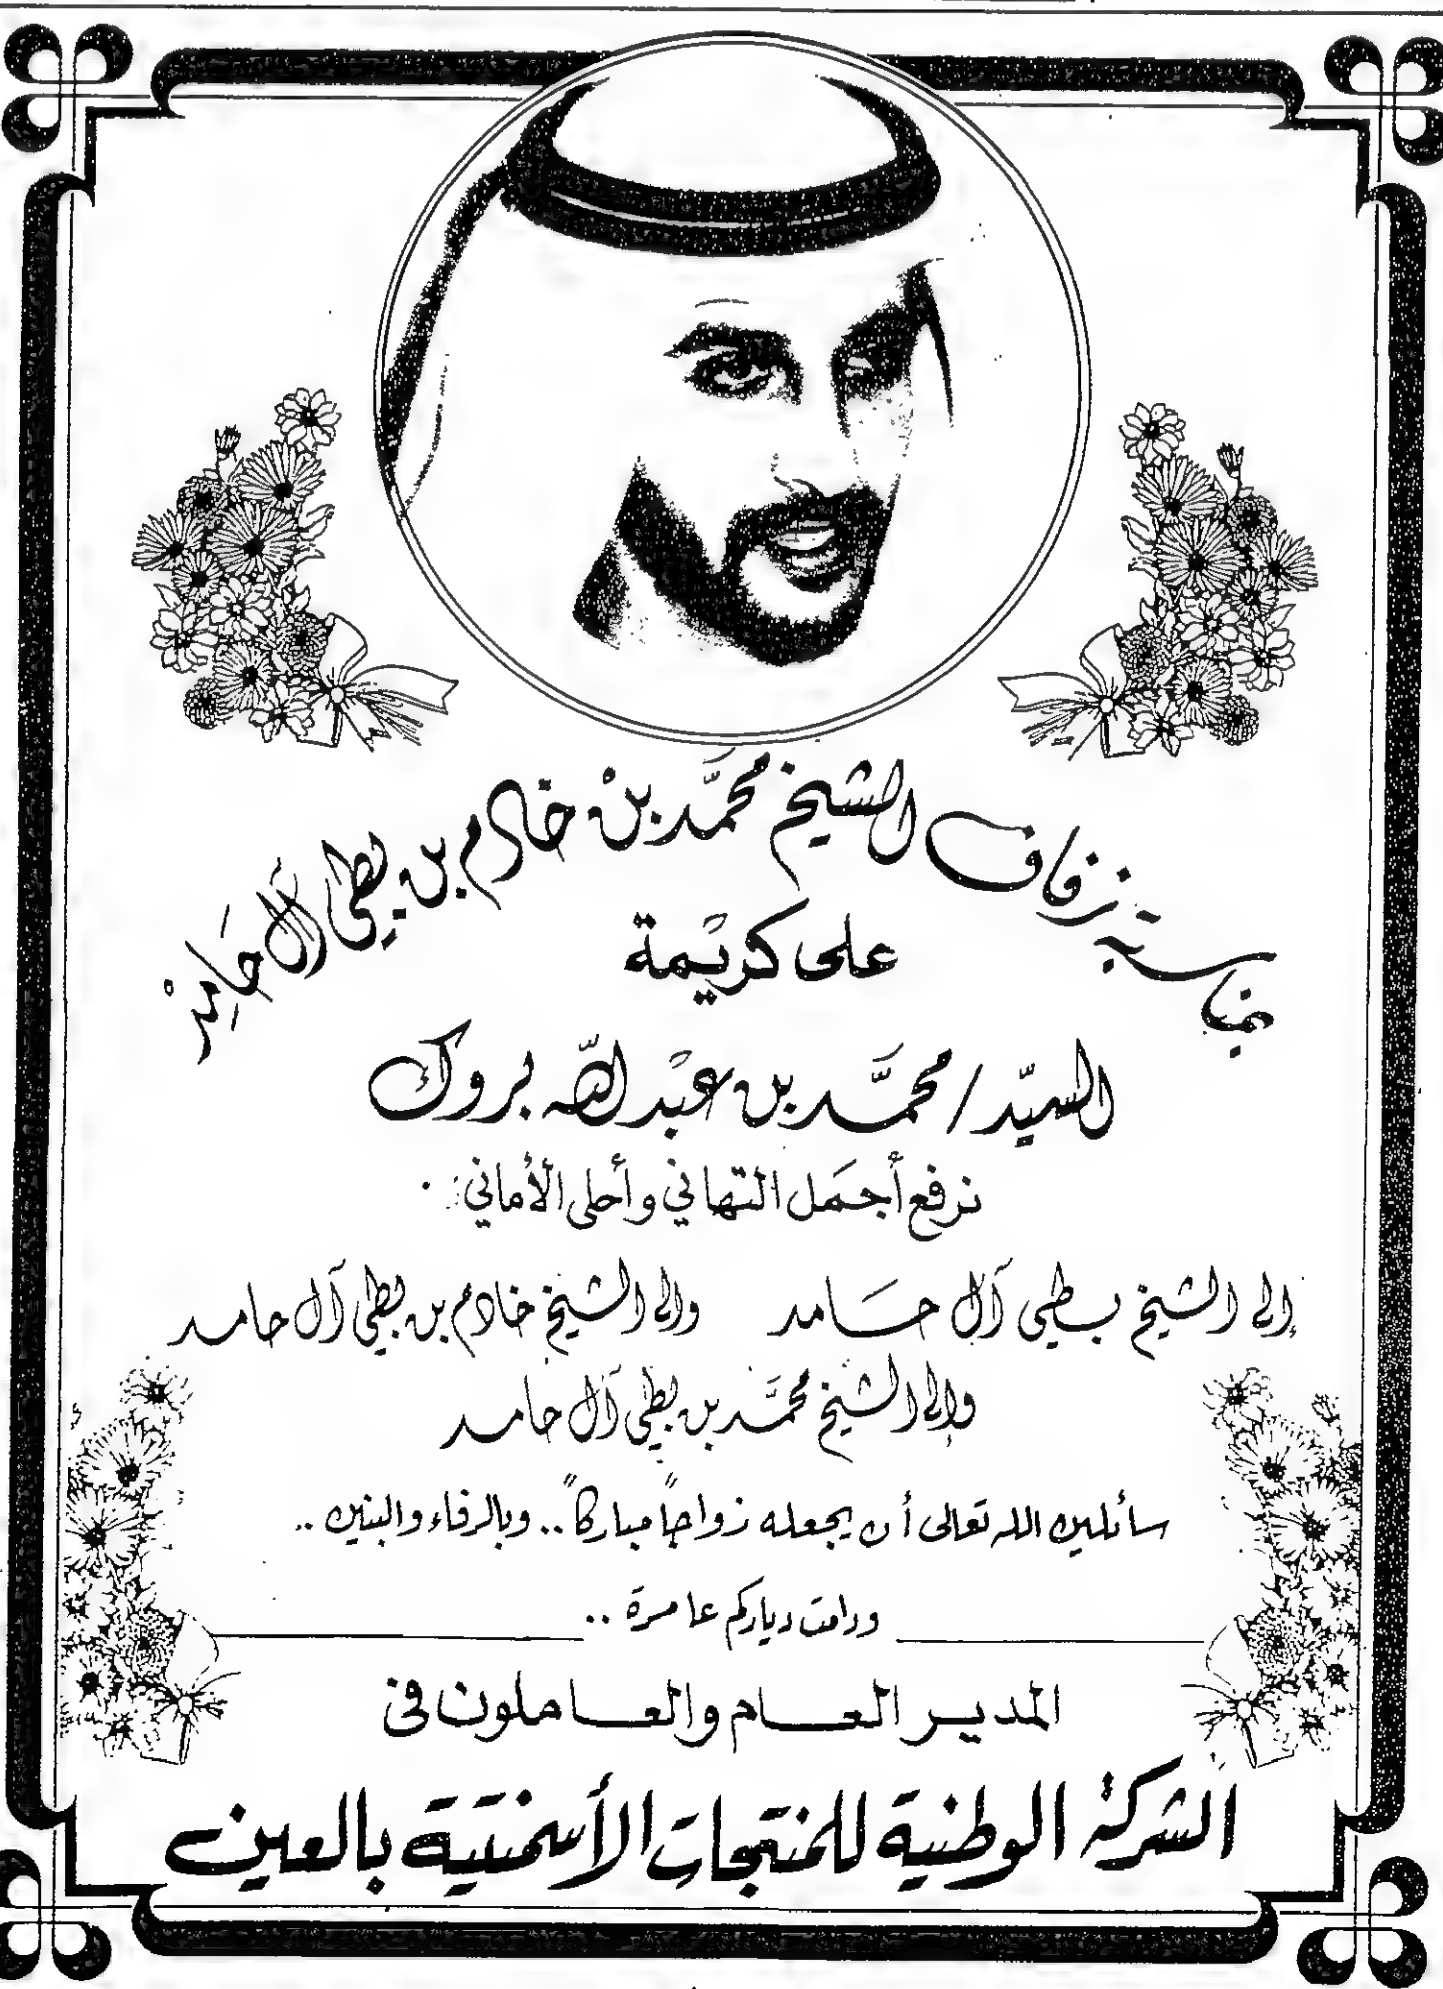 بمناسبة زفاف الشيخ محمَّد بنْ خادم بن بطي آل حَامِدْ
على كريمة
السيّد / محمَّد بن عبْد اللّه بروك
نرفع أجمَل التهاني وأحلى الأماني .
إلى الشيخ بطي آل حَامد وإلى الشيخ خادم بن بطي آل حامد
وإلى الشيخ محمَّد بن بطي آل حامد
سائلين الله تعالى أن يجعله زواجاً مباركاً .. وبالرفاء والبنين ..
ودامت دياركم عامرة ..
المدير العام والعاملون في
الشركة الوطنية للمنتجات الأسمنتية بالعين